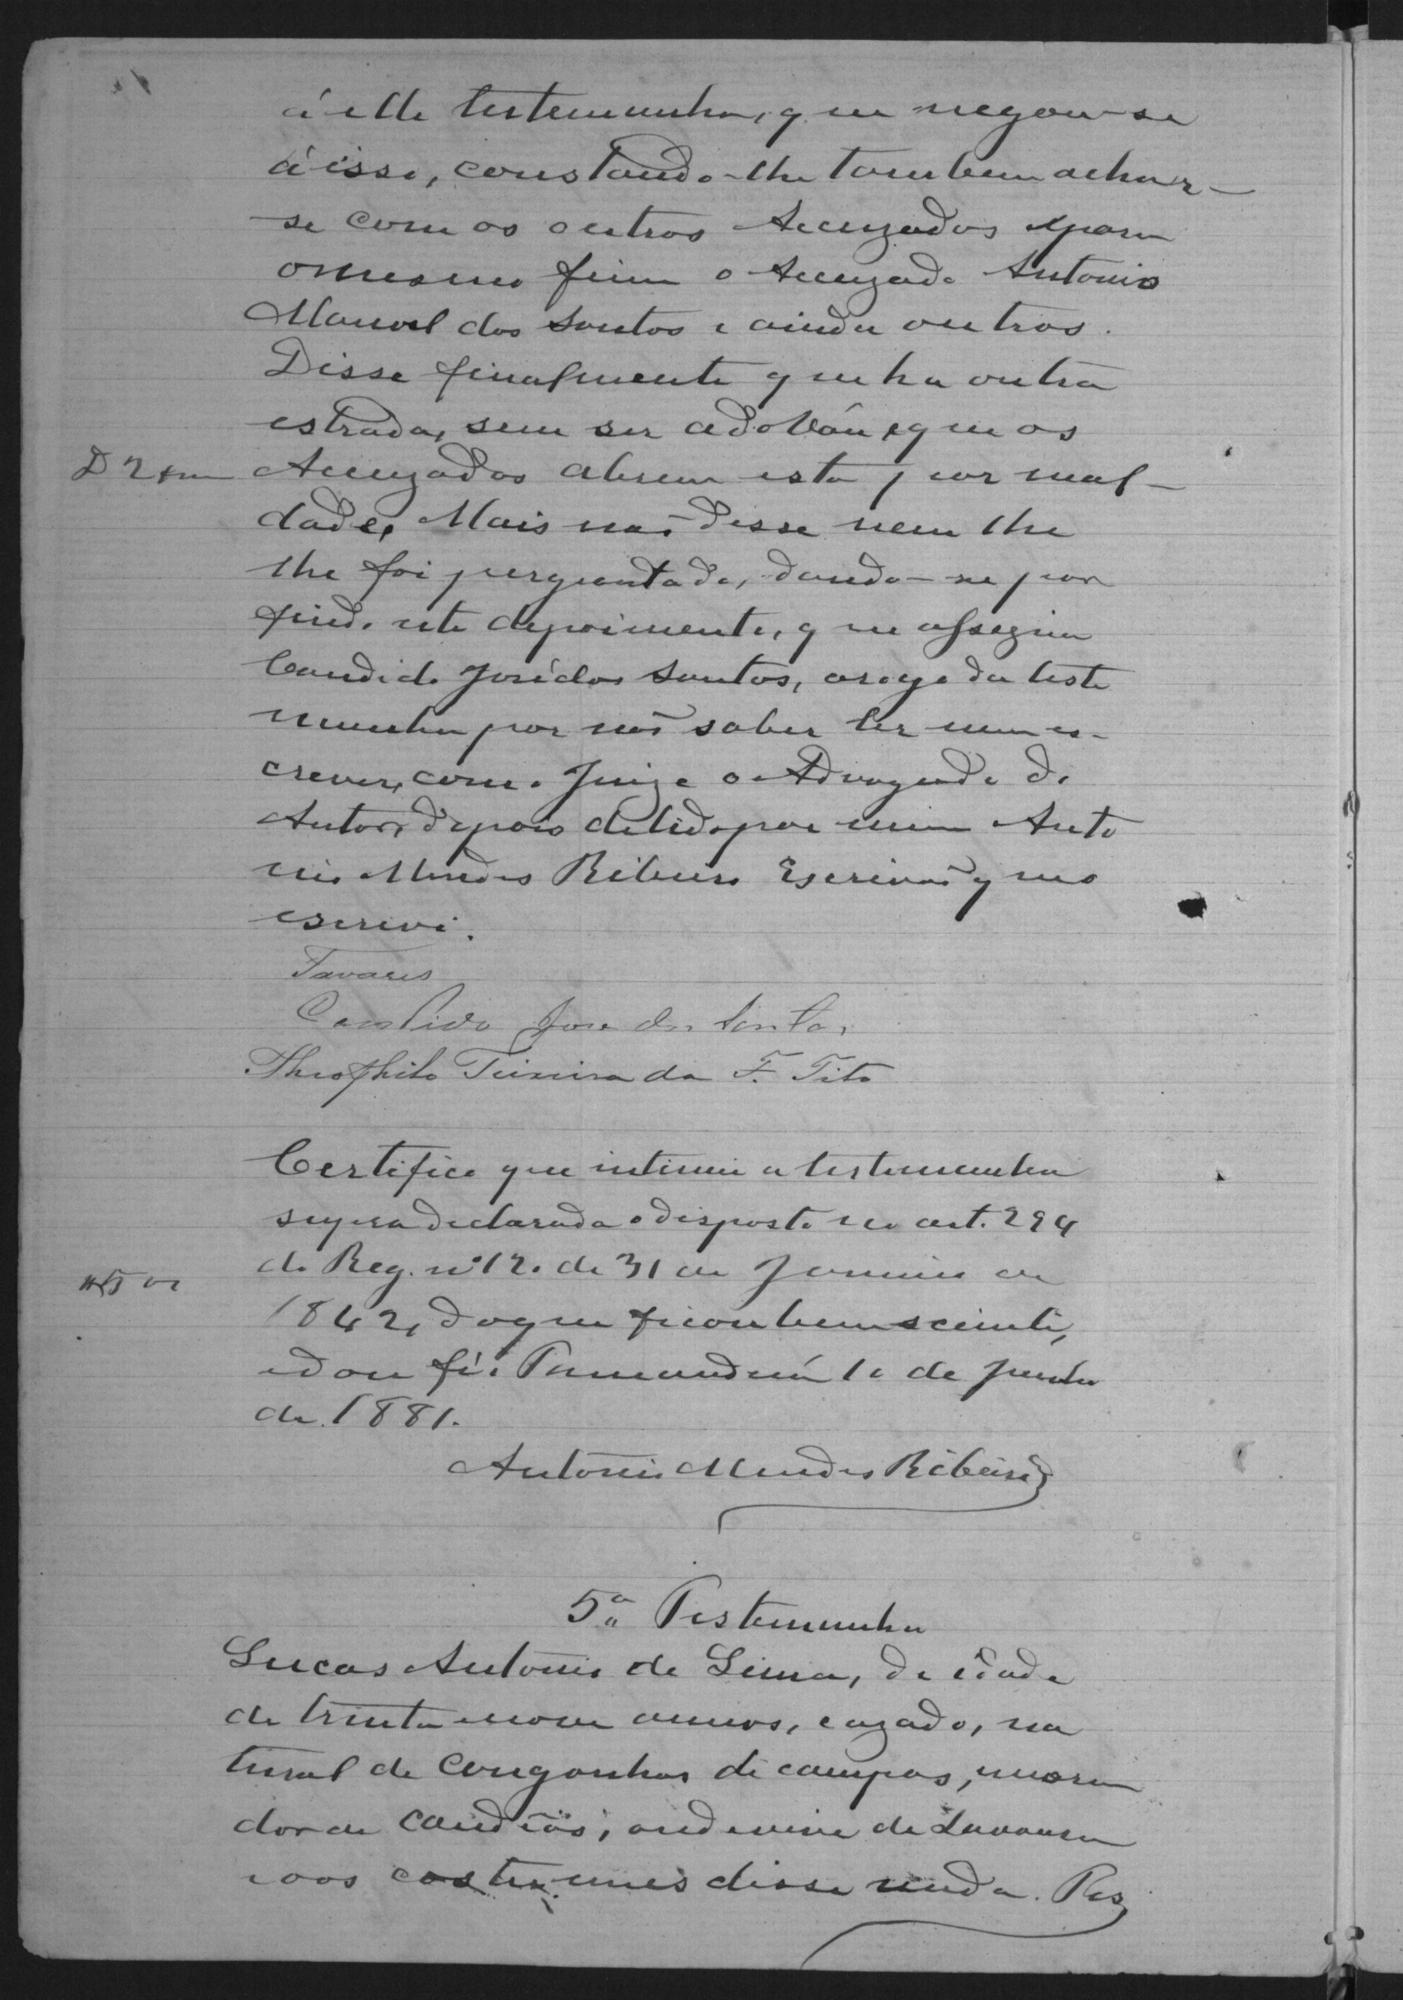 á elle testemunha, que negou-se
á isso, constando-lhe tambem achar-
se com os outros Accuzados e para
o mesmo fim o Accuzado Antonio
Manoel dos Santos e ainda outros.
Disse finalmente que ha outra
estrada, sem ser a do Vão, e que os
Accuzados abrem esta por mal-
dade. Mais não disse nem lhe
lhe foi perguntado, dando-se por
findo este depoimento, que assigna
Candido José dos Santos, a rogo da teste
munha por não saber ler nem es-
crever, com o Juiz e o Advogado do
Autor, depois de lido por mim Anto
nio Mendes Ribeiro Escrivão que o
escrevi.
Tavares
Candido Jose dos Santos
Theophilo Teixeira da F. Tito
Certifico que intimei a testemunha
supra declarada o disposto no art. 294
do Reg. nº 120 de 31 de Janeiro de
1842, do que ficou bem sciente,
e dou fé. Tamanduá 10 de Junho
de 1881.
Antonio Mendes Ribeiro
5ª Testemunha
Lucas Antonio de Lima, de idade
de trinta e nove annos, cazado, na
tural de Congonhas do campos, mora
dor de Candêas, onde vive de Lavoura
e aos costumes disse nada. Res